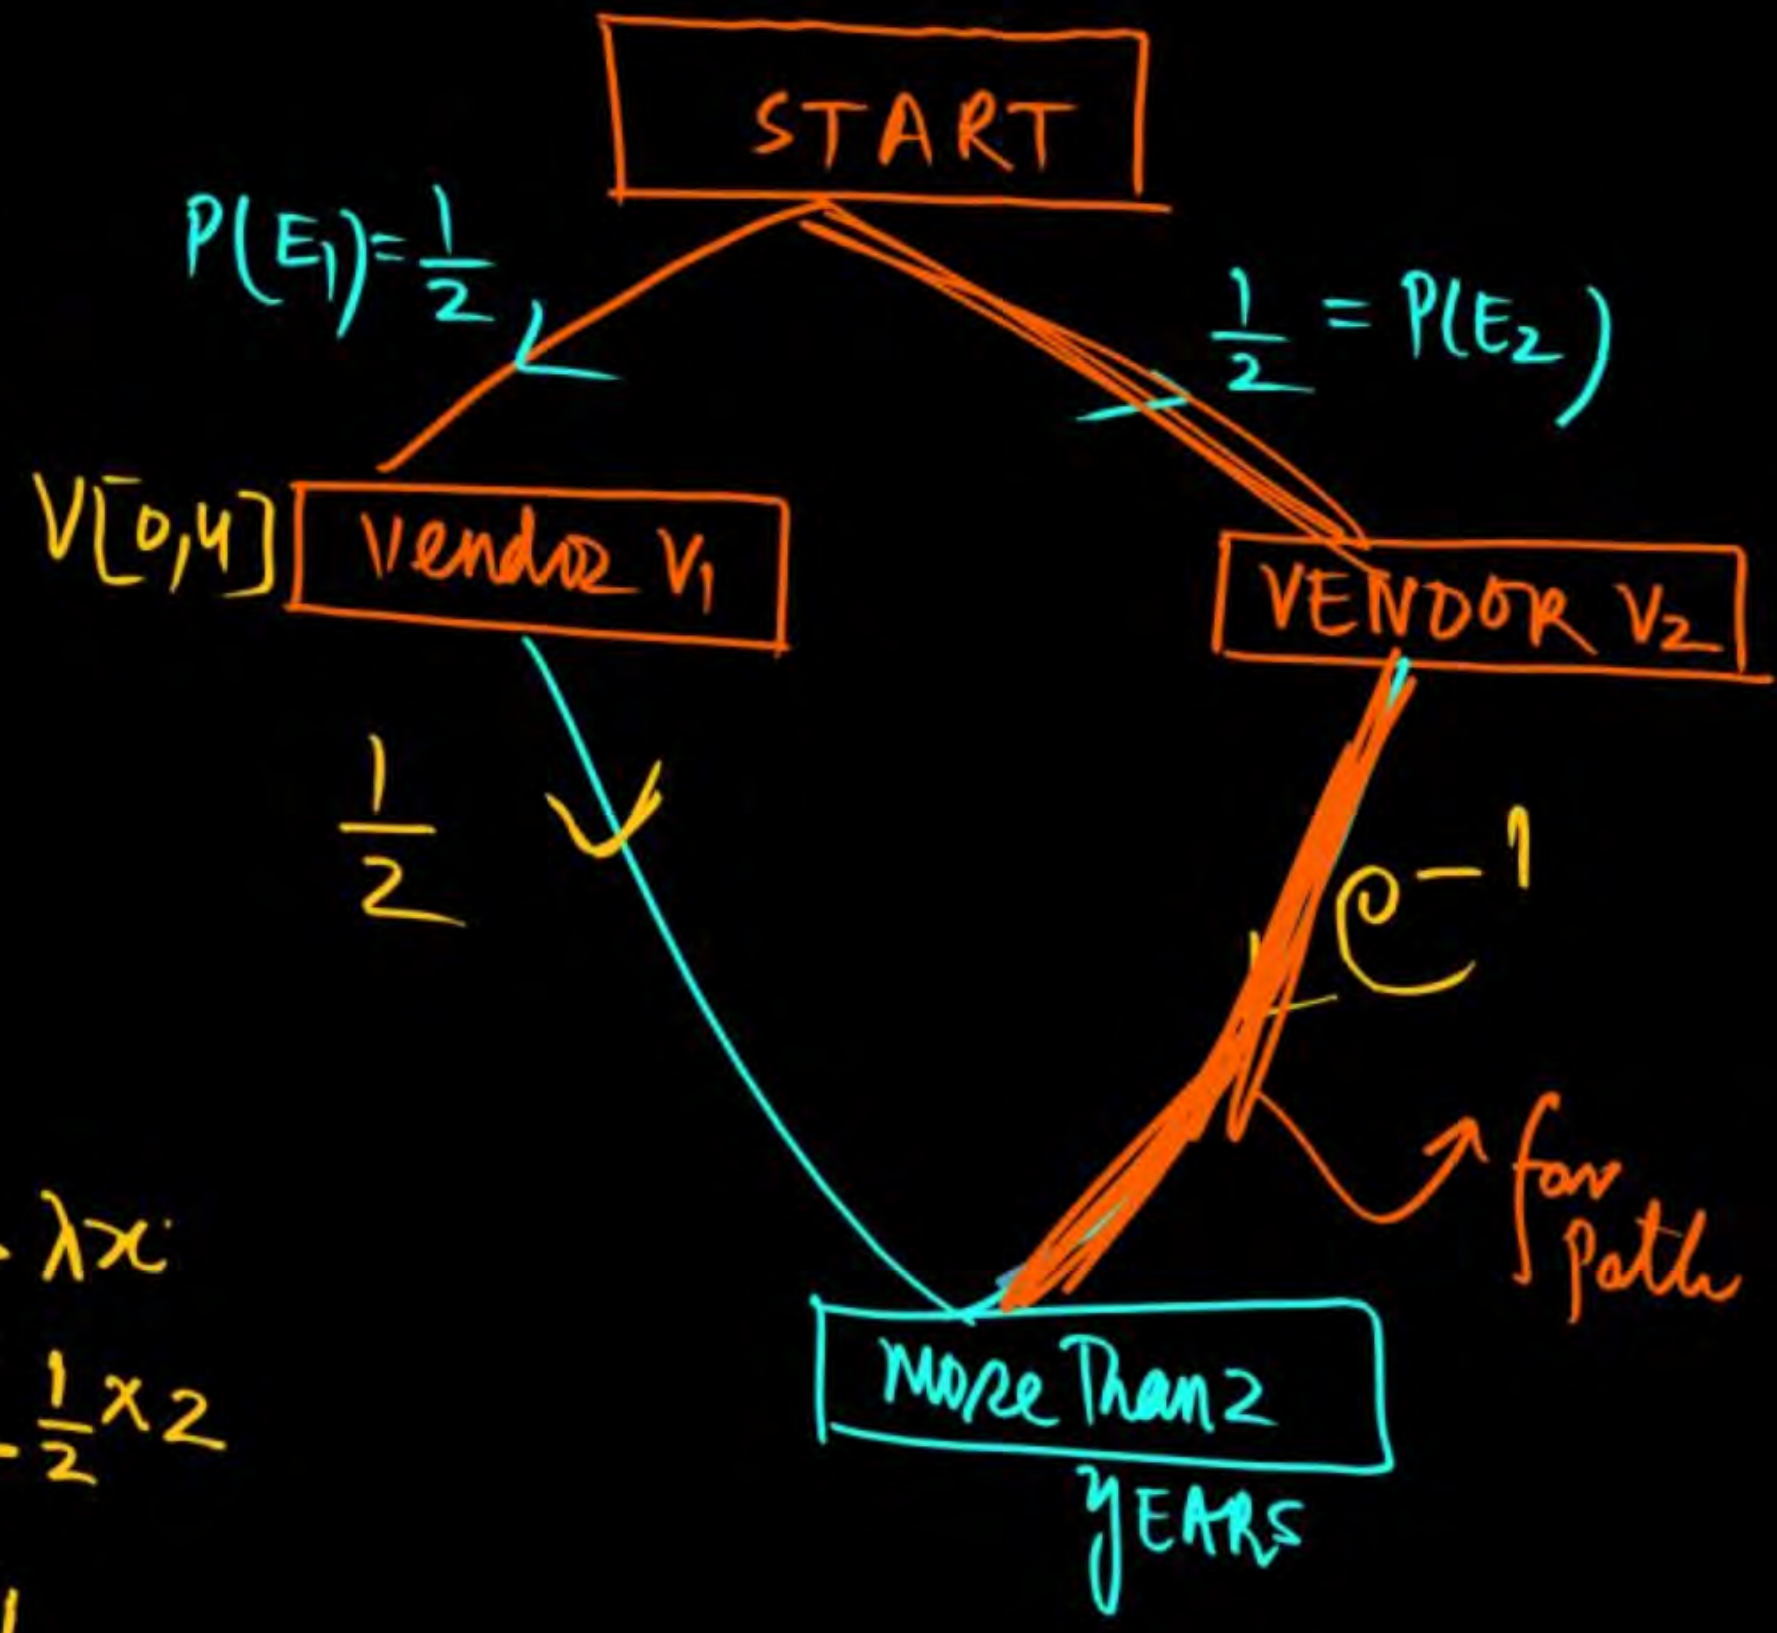 START
P(E₁)=1/2
1/2 = P(E₂)
V[0,4]
Vendor V₁
VENDOR V₂
1/2
e⁻¹
fav
Path
- λx
- 1/2 × 2
More Than 2
YEARS